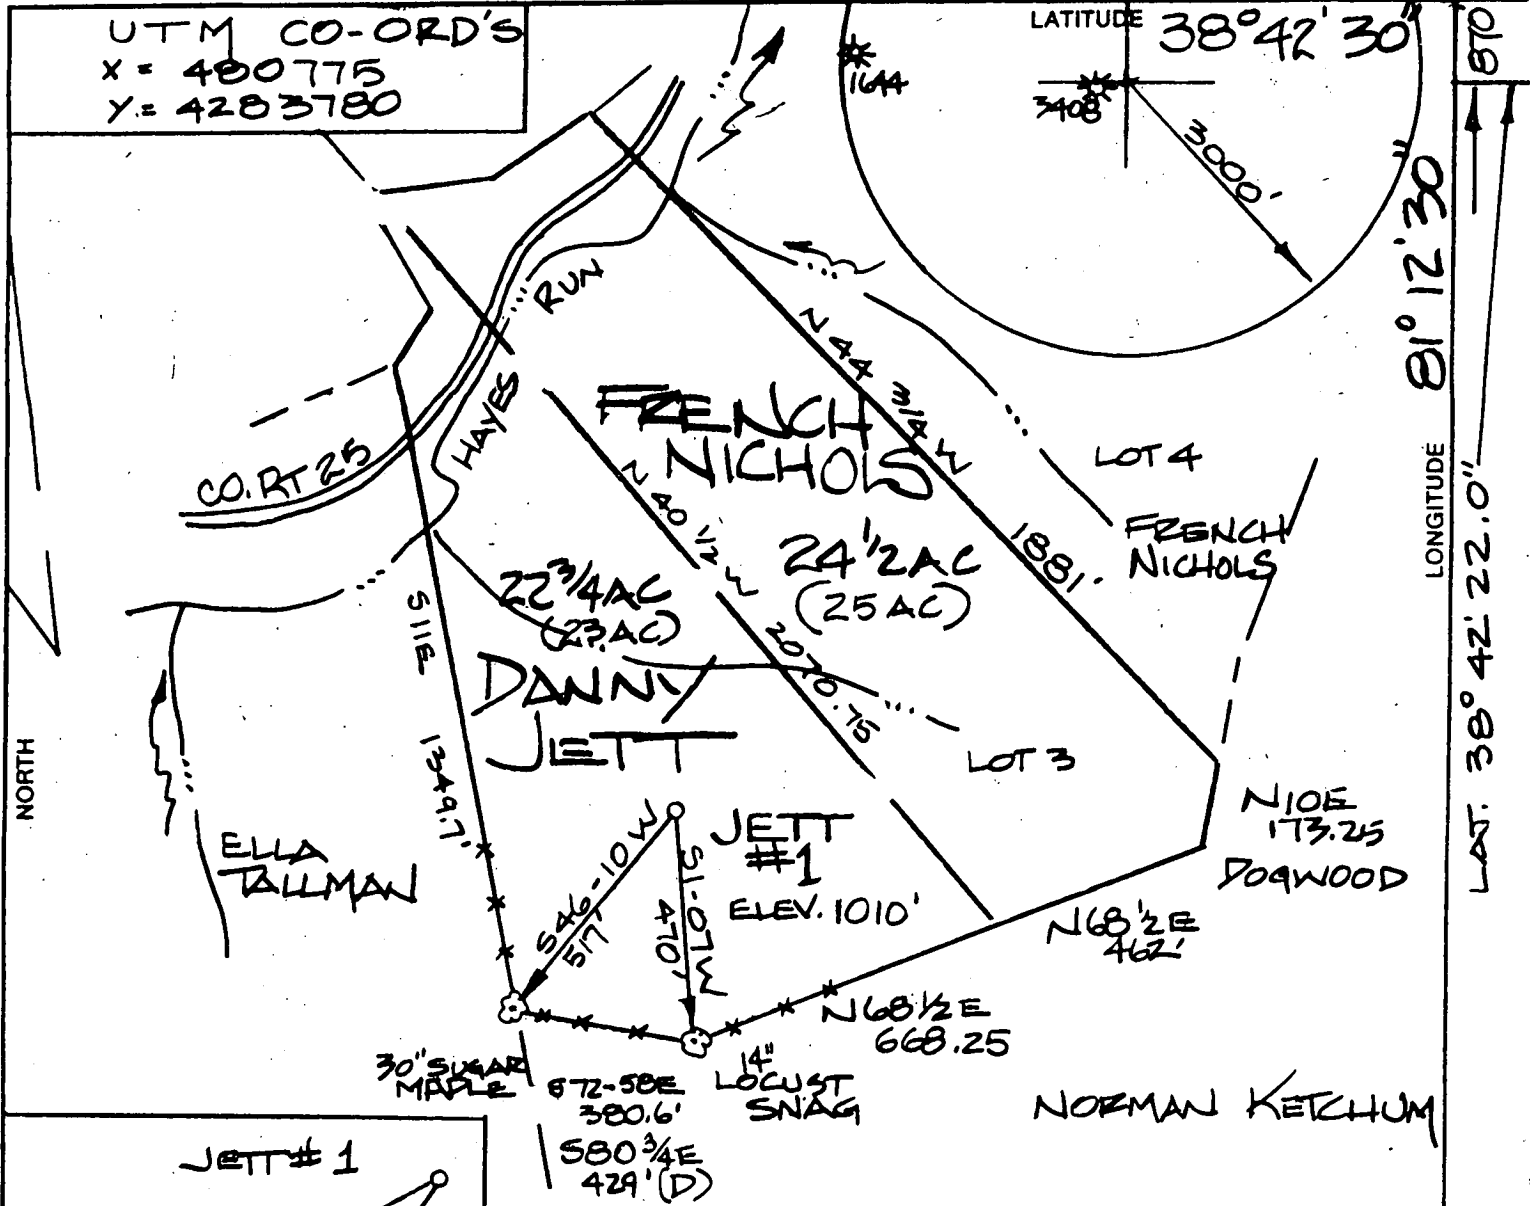 UTM CO-ORD'S
X = 480775
Y = 4283780
LATITUDE 38° 42' 30"
870
1644
3408
3000'
81° 12' 30"
LONGITUDE
LAT. 38° 42' 22.0"
NORTH
RUN
HAYES
CO. RT 25
FRENCH
NICHOLS
N 44 3/4 W
1881'
LOT 4
FRENCH
NICHOLS
N 40 1/2 W
2070.75
24 1/2 AC
(25 AC)
22 3/4 AC
(23 AC)
DANNY
JETT
S 11 E
1349.7'
LOT 3
N10E
173.25
DOGWOOD
ELLA
TALLMAN
JETT
#1
ELEV. 1010'
S46-10W
517'
S1-07W
470'
N68 1/2 E
462'
N68 1/2 E
668.25
30" SUGAR
MAPLE
S72-58E
380.6'
S80 3/4 E
429' (D)
14"
LOCUST
SNAG
NORMAN KETCHUM
JETT # 1